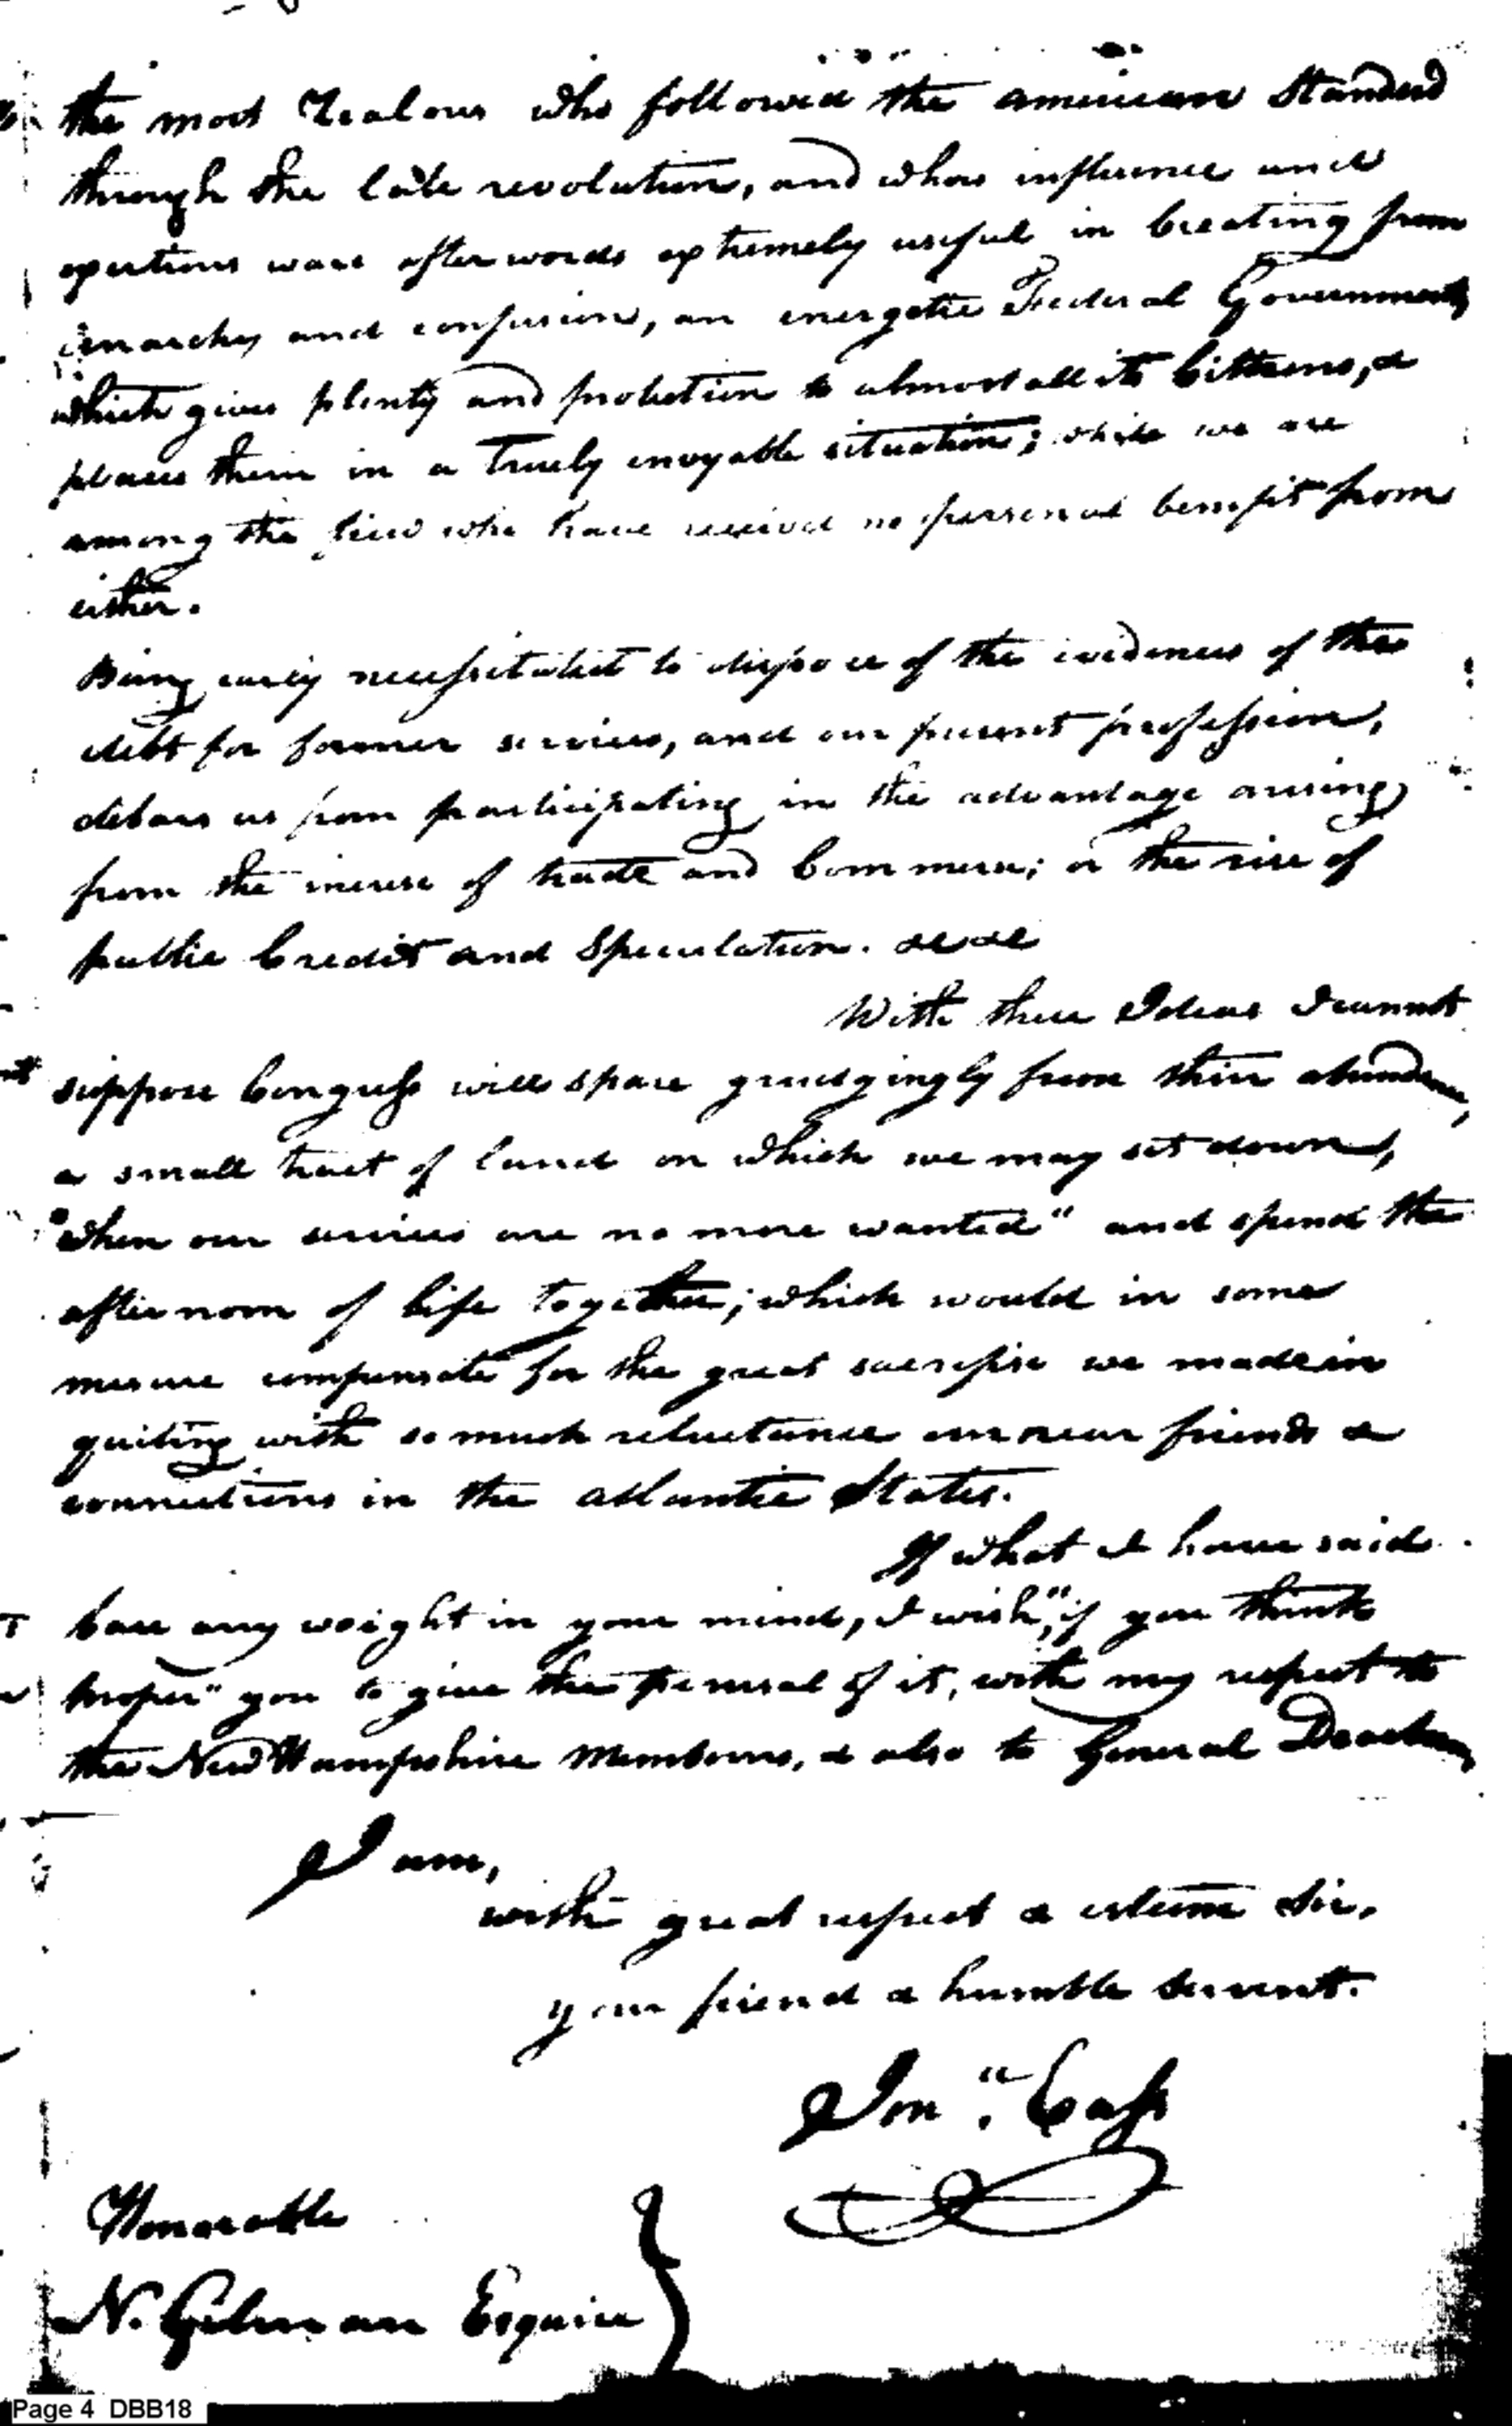 the most Zealous who followed the american Standerd
through the late revolution, and whose influence and
exertions ware afterwords extremely usefull in Creating from
anarchy and confusion, an energetic Fœderal Government,
which gives plenty and protection to almost all its Cittizens, &
places them in a truely enoyable situation; while we are
among the few who have received no personal benefit from
either.
Being early necessitated to dispose of the evidences of the
debt for former services, and our present profession,
debars us from participating in the advantage arising
from the increse of trade and Commerce; or the rise of
public Credit and Speculation. &c &c
With these Ideas I cannot
suppose Congress will spare grudgingly from their abundance,
a small tract of land on which we may set down,
"when our services are no more wanted" and spend the
afternoon of life together; which would in some
mesure compensate for the great sacrefise we made in
quiting with so much reluctance our near friends &
connections in the atlantic States.
If what I have said
bare any weight in your mind, I wish, "if you think
proper" you to give the perusal of it, with my respect to
the New Hampshire Members, & also to General Dearborn
I am,
with great respect & esteem Sir,
your friend & humble servent.
Jon.a Cass
Honorable
N. Gilman Esquire
Page 4 DBB18